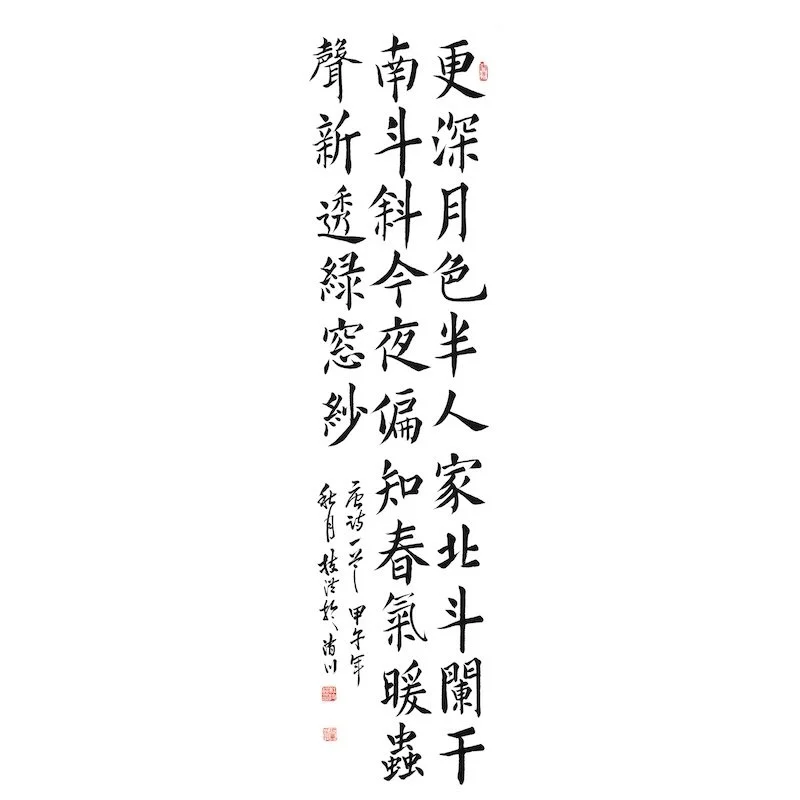 更深月色半人家北斗闌干
南斗斜今夜偏知春氣暖蟲
聲新透綠窓紗
唐詩一首甲午年
秋月 於 川